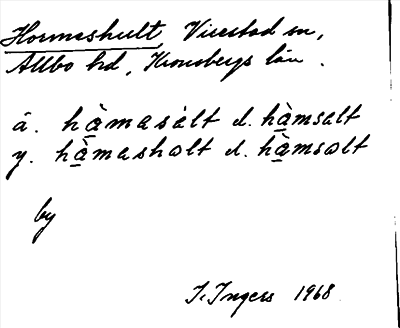 Hormeshult Virestad sn,
Allbo hd, Kronobergs län.
ä. hàmasált el. hàmsalt
y. hàmashalt el. hàmsalt
by
I. Ingers 1968